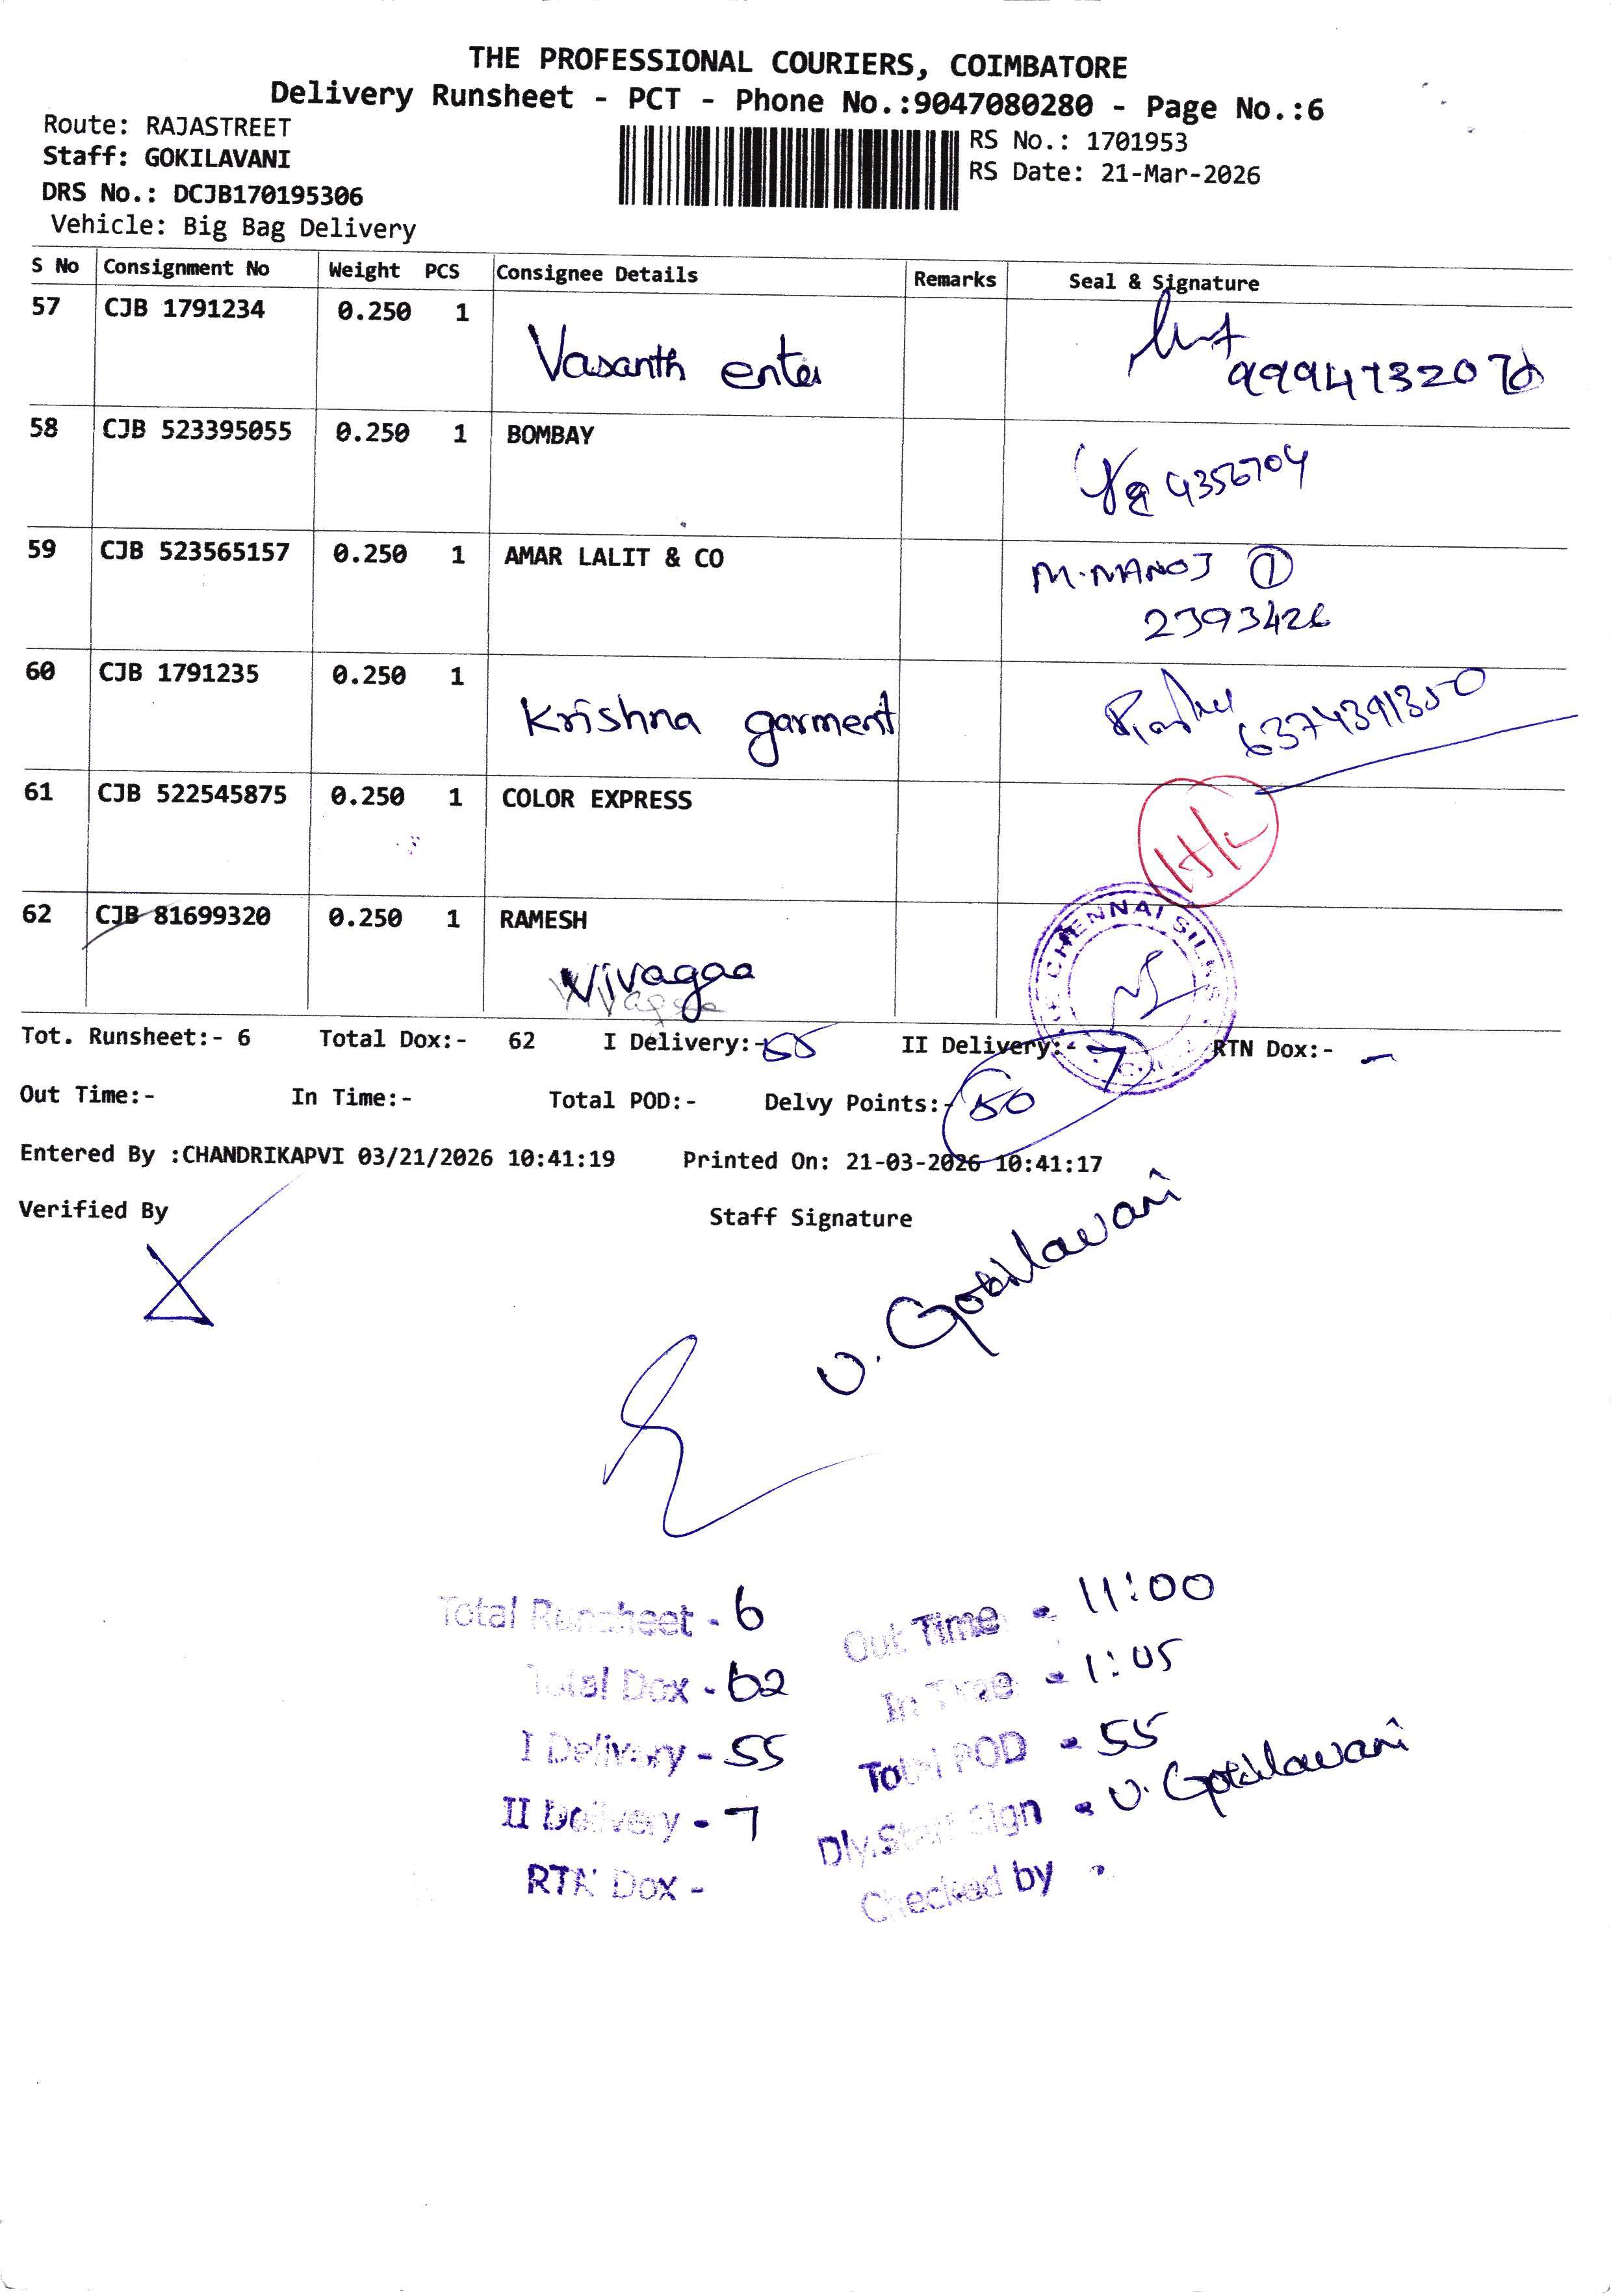 THE PROFESSIONAL COURIERS, COIMBATORE
Delivery Runsheet - PCT - Phone No.:9047080280 - Page No.:6
Route: RAJASTREET
RS No.: 1701953
Staff: GOKILAVANI
RS Date: 21-Mar-2026
DRS No.: DCJB170195306
Vehicle: Big Bag Delivery
S No Consignment No Weight PCS Consignee Details Remarks Seal & Signature
57 CJB 1791234 0.250 1
Vasanth enter
58 CJB 523395055 0.250 1 BOMBAY
4356704
59 CJB 523565157 0.250 1 AMAR LALIT & CO M.MANOJ 1
2393426
60 CJB 1791235 0.250 1
Krishna garment 6374391350
61 CJB 522545875 0.250 1 COLOR EXPRESS
62 CJB 81699320 0.250 1 RAMESH
CHENNAI SILKS
Vivagaa
Tot. Runsheet:- 6 Total Dox:- 62 I Delivery:- 55 II Delivery:- 7 RTN Dox:- -
Out Time:- In Time:- Total POD:- Delvy Points:- 50
Entered By :CHANDRIKAPVI 03/21/2026 10:41:19 Printed On: 21-03-2026 10:41:17
Verified By Staff Signature
V. Gokilavani
Total Runsheet - 6 Out Time - 11:00
Total Dox - 62 In Time - 1:05
I Delivery - 55 Total POD - 55
II Delivery - 7 Dly.Staff Sign - V. Gokilavani
RTN Dox - Checked by -